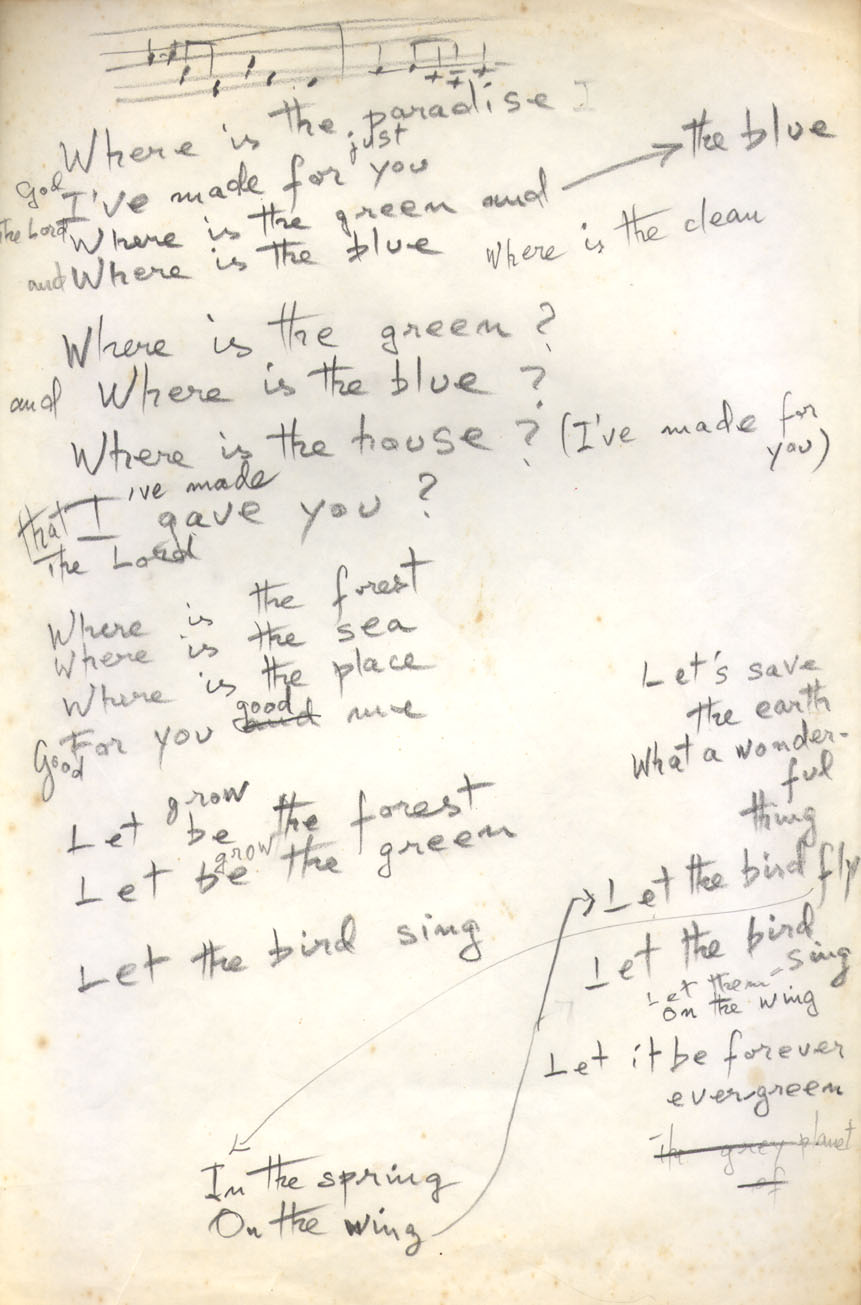 Where is the paradise I
just
God I've made for you
the blue
The Lord Where is the green and
and Where is the blue
Where is the clean
Where is the green ?
and Where is the blue ?
Where is the house ? (I've made for
you)
've made
that I gave you ?
The Lord
Where is the forest
Where is the sea
Where is the place
good
For you and me
Good
grow
Let be the forest
grow
Let be the green
Let the bird sing
Let's save
the earth
What a wonder-
ful
thing
Let the bird fly
Let the bird
sing
Let them
On the wing
Let it be forever
evergreen
The grey planet
of
In the spring
On the wing